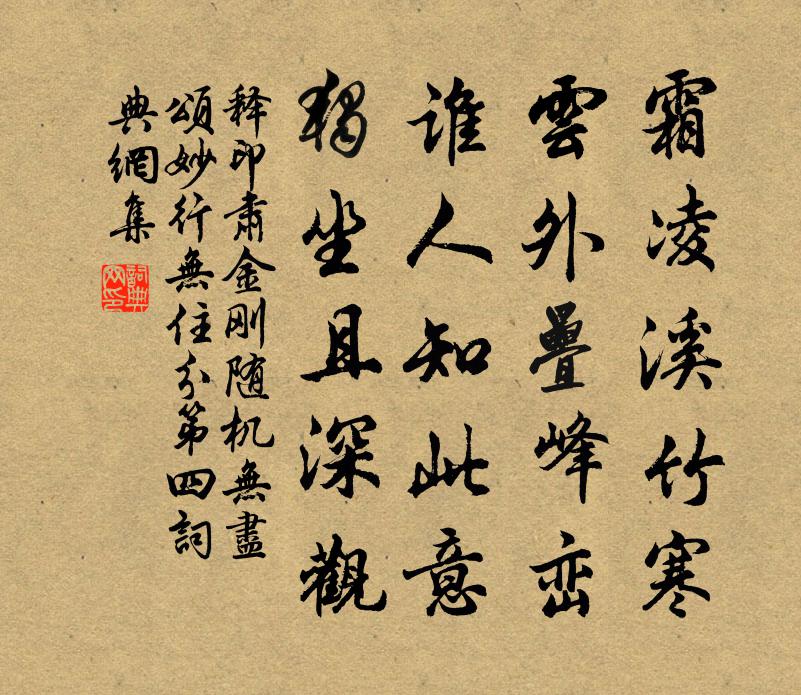 霜凌溪竹寒
雲外疊峰峦
谁人知此意
獨坐且深觀
释印肃金刚随机無盡
頌妙行無住分第四詞
典網集
詞典網印